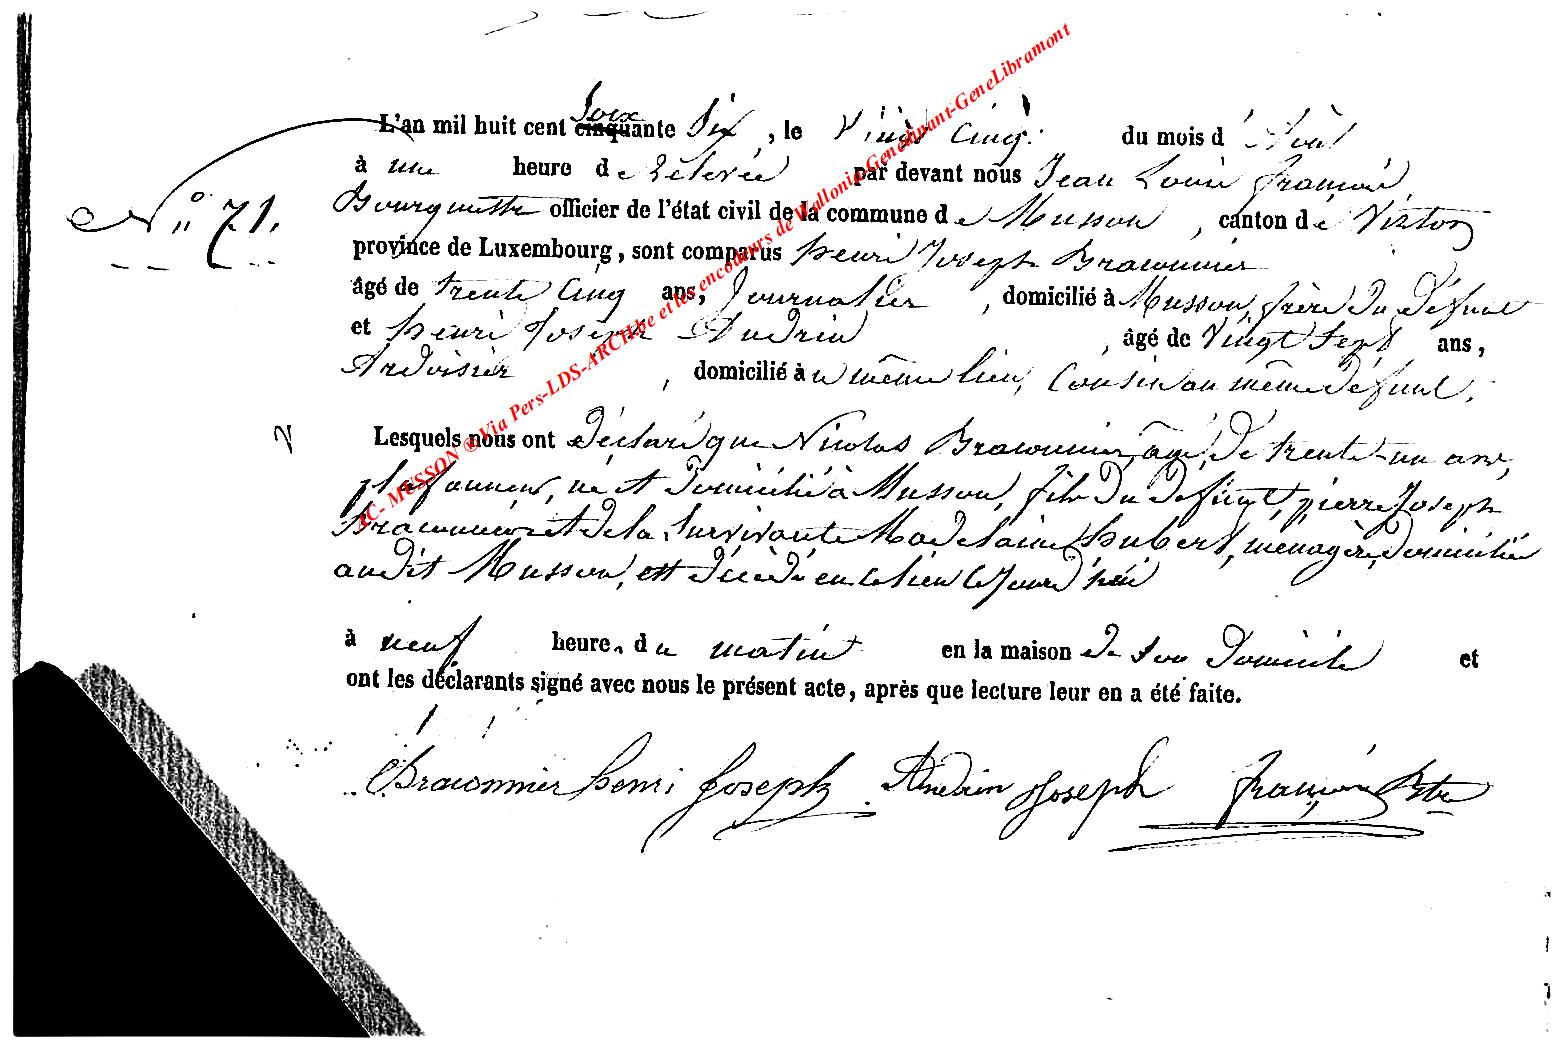 L'an mil huit cent Soixante Six, le Vingt Cinq du mois d'Août
à une heure de relevée par devant nous Jean Louis François
N° 71. officier de l'état civil de la commune de Musson, canton de Virton
province de Luxembourg, sont comparus henri Joseph Braconnier
âgé de trente Cinq ans, Journalier, domicilié à Musson, frère du défunt
et henri Joseph Andrin, âgé de Vingt Sept ans,
Ardoisier, domicilié au même lieu, Cousin au même défunt.
Lesquels nous ont déclaré que Nicolas Braconnier, âgé de trente-un ans,
plafonneur, né et domicilié à Musson, fils du défunt, pierre Joseph
Braconnier et de la Survivante Madelaine hubert, ménagère, domiciliée
audit Musson, est décédé en ce lieu Cejourd'hui
à neuf heure. du matin en la maison de son domicile et
ont les déclarants signé avec nous le présent acte, après que lecture leur en a été faite.
Braconnier henri Joseph Andrin Joseph François
EC- MUSSON ® Via Pers-LDS-ARCH.be et les encodeurs de Wallonia-GeneDinant-GeneLibramont